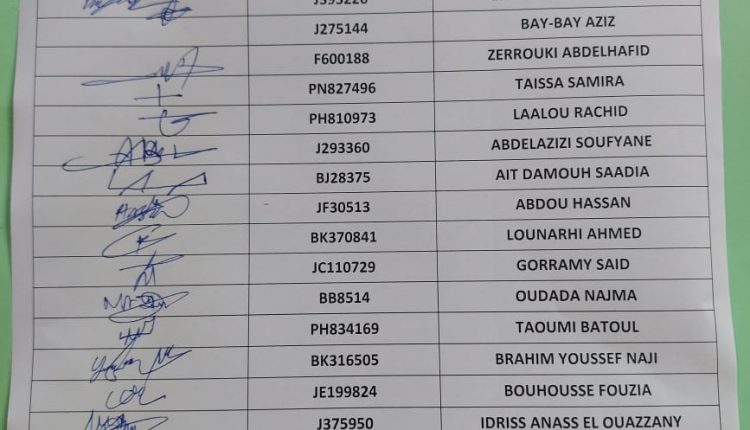 J275144 BAY-BAY AZIZ
F600188 ZERROUKI ABDELHAFID
PN827496 TAISSA SAMIRA
PH810973 LAALOU RACHID
J293360 ABDELAZIZI SOUFYANE
BJ28375 AIT DAMOUH SAADIA
JF30513 ABDOU HASSAN
BK370841 LOUNARHI AHMED
JC110729 GORRAMY SAID
BB8514 OUDADA NAJMA
PH834169 TAOUMI BATOUL
BK316505 BRAHIM YOUSSEF NAJI
JE199824 BOUHOUSSE FOUZIA
J375950 IDRISS ANASS EL OUAZZANY